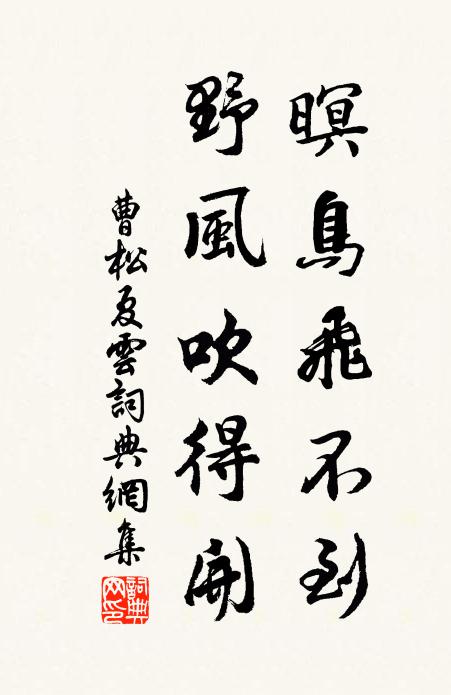 暝鳥飛不到
野風吹得開
曹松夏雲詞典網集
詞典網印